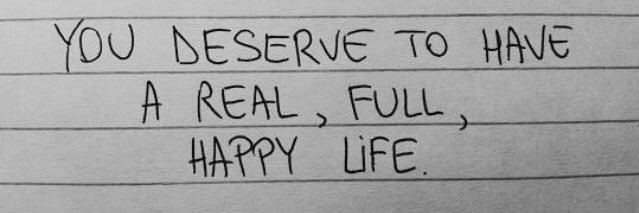 YOU DESERVE TO HAVE
A REAL, FULL,
HAPPY LiFE.